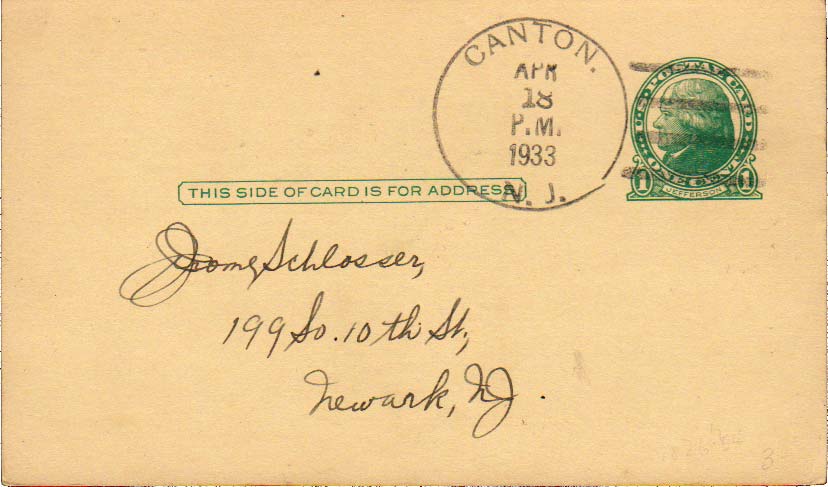 CANTON.
APR
18
P.M.
1933
N. J.
U·S·POSTAL CARD
ONE CENT
1 JEFFERSON 1
THIS SIDE OF CARD IS FOR ADDRESS
Jromy Schlosser,
199 So. 10 th St,
Newark, NJ.
3